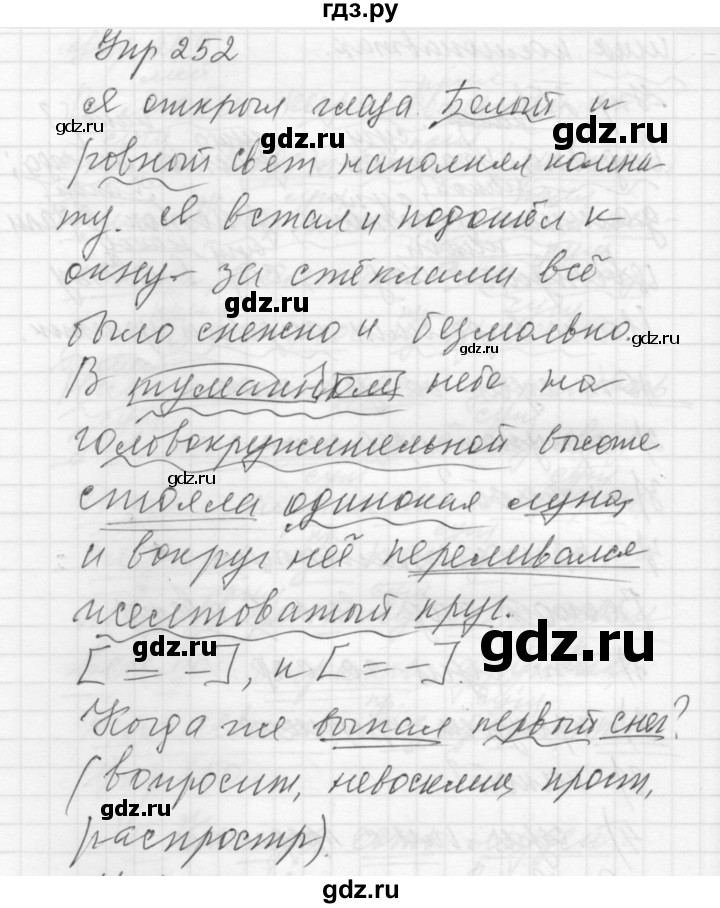 гдз.ру
Упр 252
Я открыл глаза. Белый и
gdz.ru
gdz.ru
gdz.ru
ровный свет наполнял комна-
ту. Я встал и подошёл к
окну – за стёклами всё
gdz.ru
было снежно и безмолвно.
gdz.ru
gdz.ru
В туманном небе на
головокружительной высоте
gdz.ru
стояла одинокая луна,
и вокруг неё переливался
желтоватый круг.
gdz.ru
gdz.ru
[= –], и [= –]
Когда же выпал первый снег?
(вопросит, невосклиц, прост,
gdz.ru
распростр).
gdz.ru